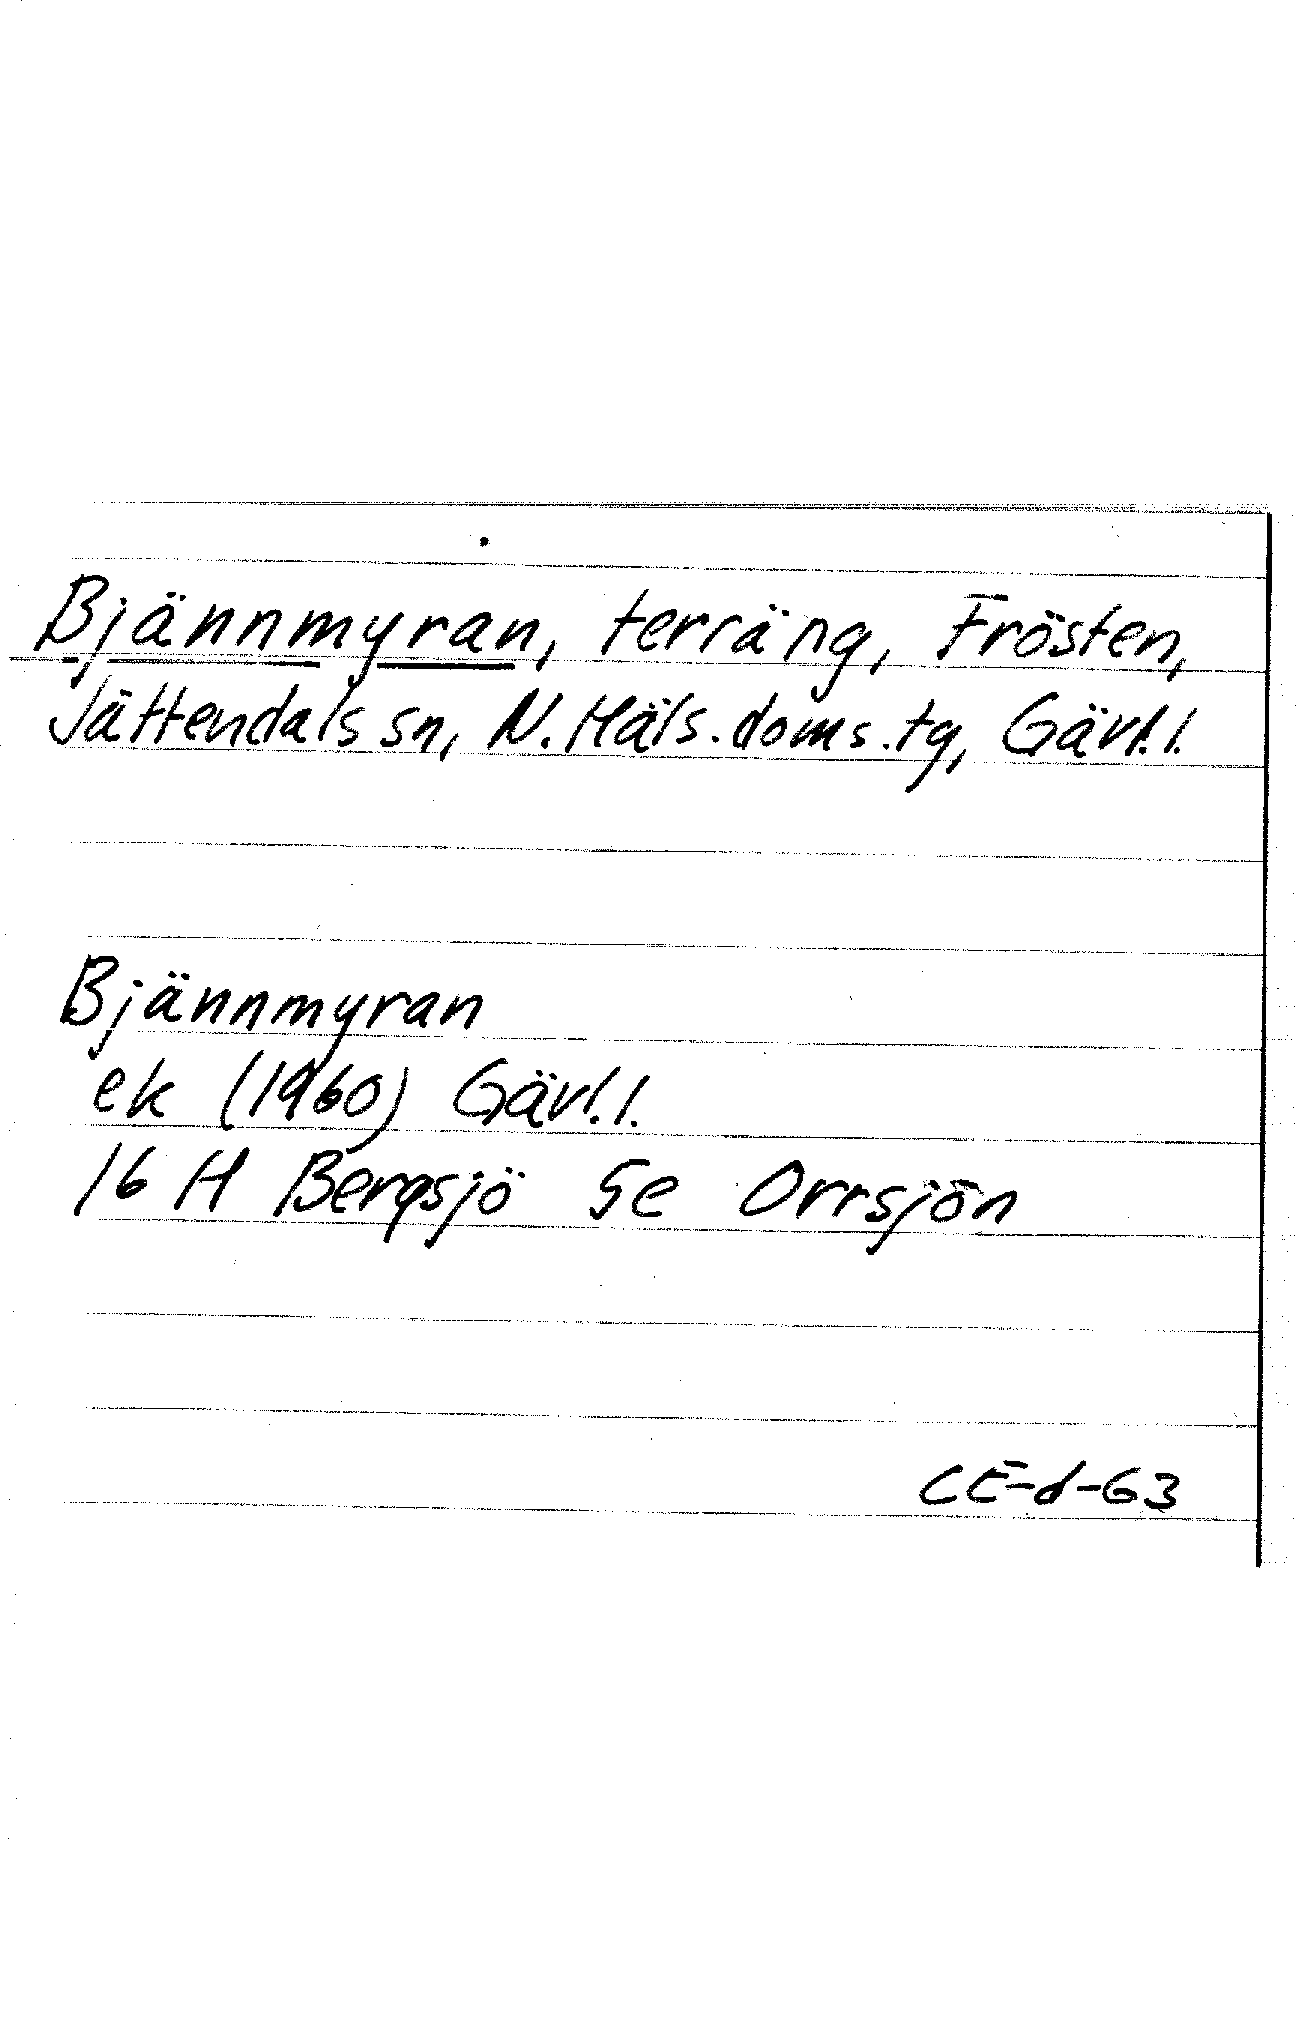 Bjännmyran, terräng, Frösten,
Jättendals sn, N. Häls. doms. tg, Gävl. l.
Bjännmyran
ek (1960) Gävl. l.
16 H Bergsjö 5e Orrsjön
CE-d-63